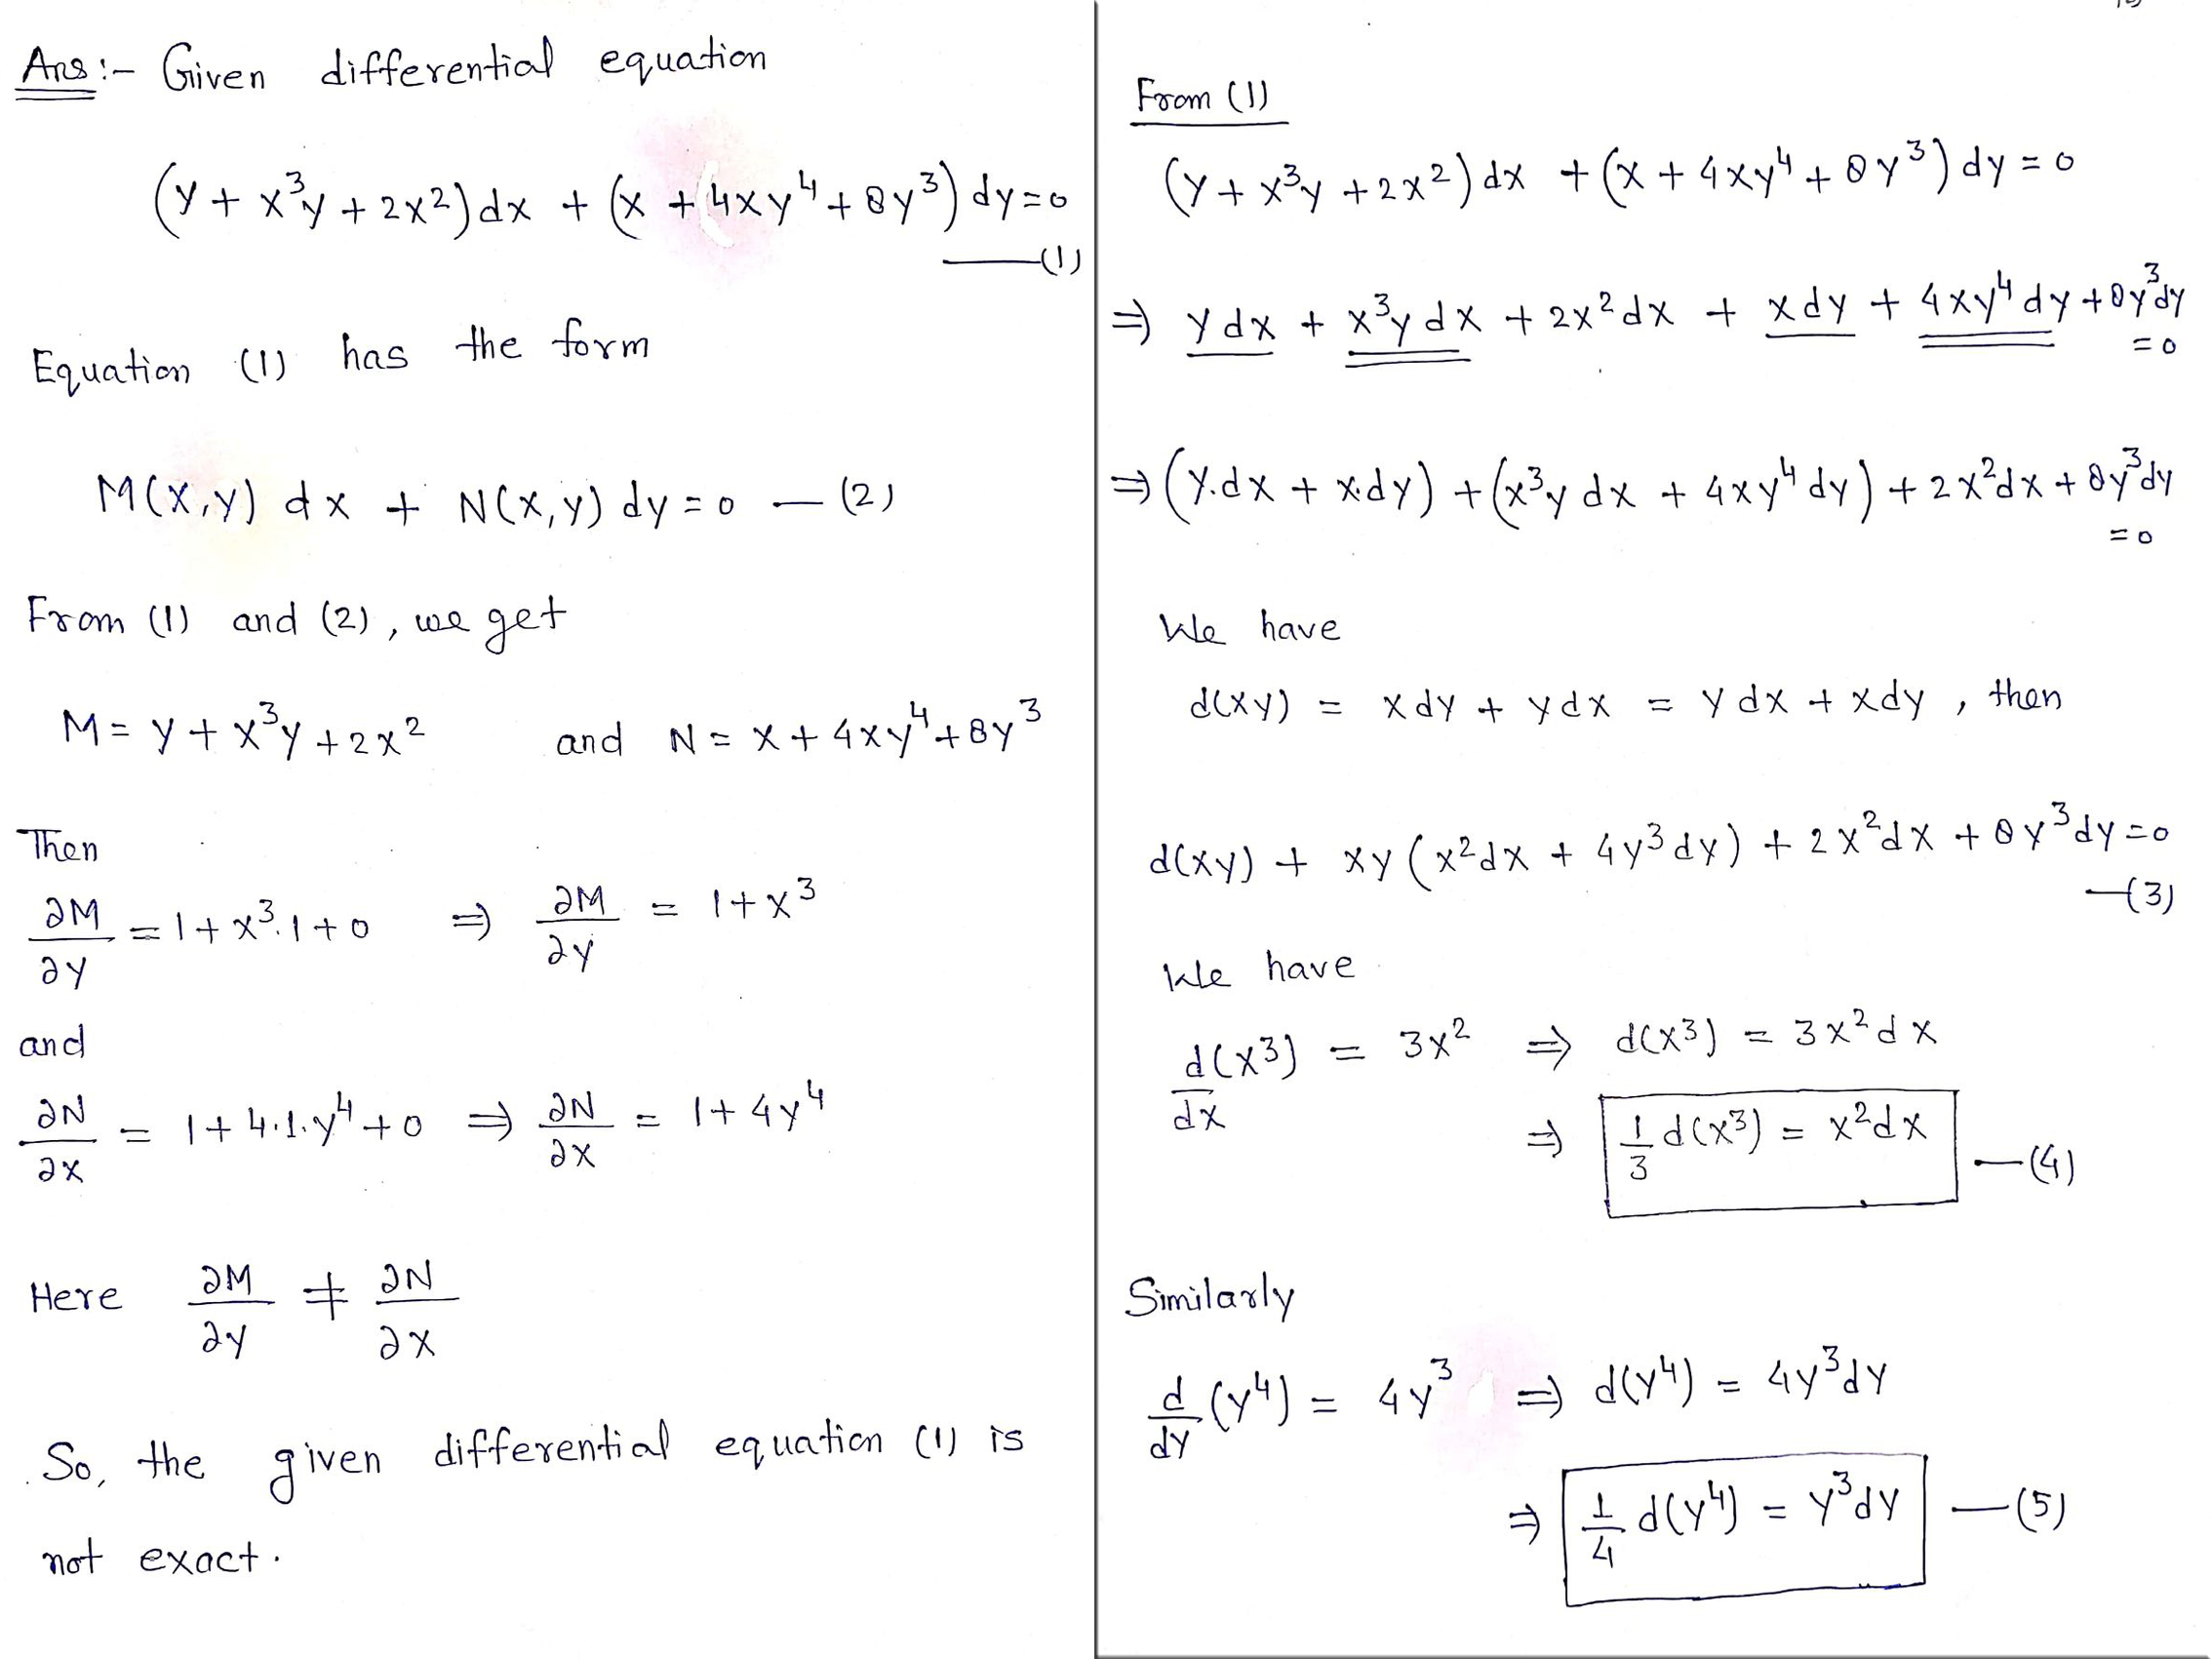 Ans :- Given differential equation
(y + x³y + 2x²) dx + (x + 4xy⁴ + 8y³) dy = 0
—(1)
Equation (1) has the form
M(x,y) dx + N(x,y) dy = 0 — (2)
From (1) and (2), we get
M = y + x³y + 2x² and N = x + 4xy⁴ + 8y³
Then
∂M/∂y = 1 + x³.1 + 0 ⇒ ∂M/∂y = 1 + x³
and
∂N/∂x = 1 + 4.1.y⁴ + 0 ⇒ ∂N/∂x = 1 + 4y⁴
Here ∂M/∂y ≠ ∂N/∂x
So, the given differential equation (1) is
not exact.
From (1)
(y + x³y + 2x²) dx + (x + 4xy⁴ + 8y³) dy = 0
⇒ y dx + x³y dx + 2x² dx + x dy + 4xy⁴ dy + 8y³dy
= 0
⇒ (y.dx + x.dy) + (x³y dx + 4xy⁴ dy) + 2x²dx + 8y³dy
= 0
We have
d(xy) = x dy + y dx = y dx + x dy , then
d(xy) + xy (x²dx + 4y³ dy) + 2x²dx + 8y³dy = 0
—(3)
We have
d/dx (x³) = 3x² ⇒ d(x³) = 3x² dx
⇒ 1/3 d(x³) = x²dx —(4)
Similarly
d/dy (y⁴) = 4y³ ⇒ d(y⁴) = 4y³dy
⇒ 1/4 d(y⁴) = y³dy —(5)